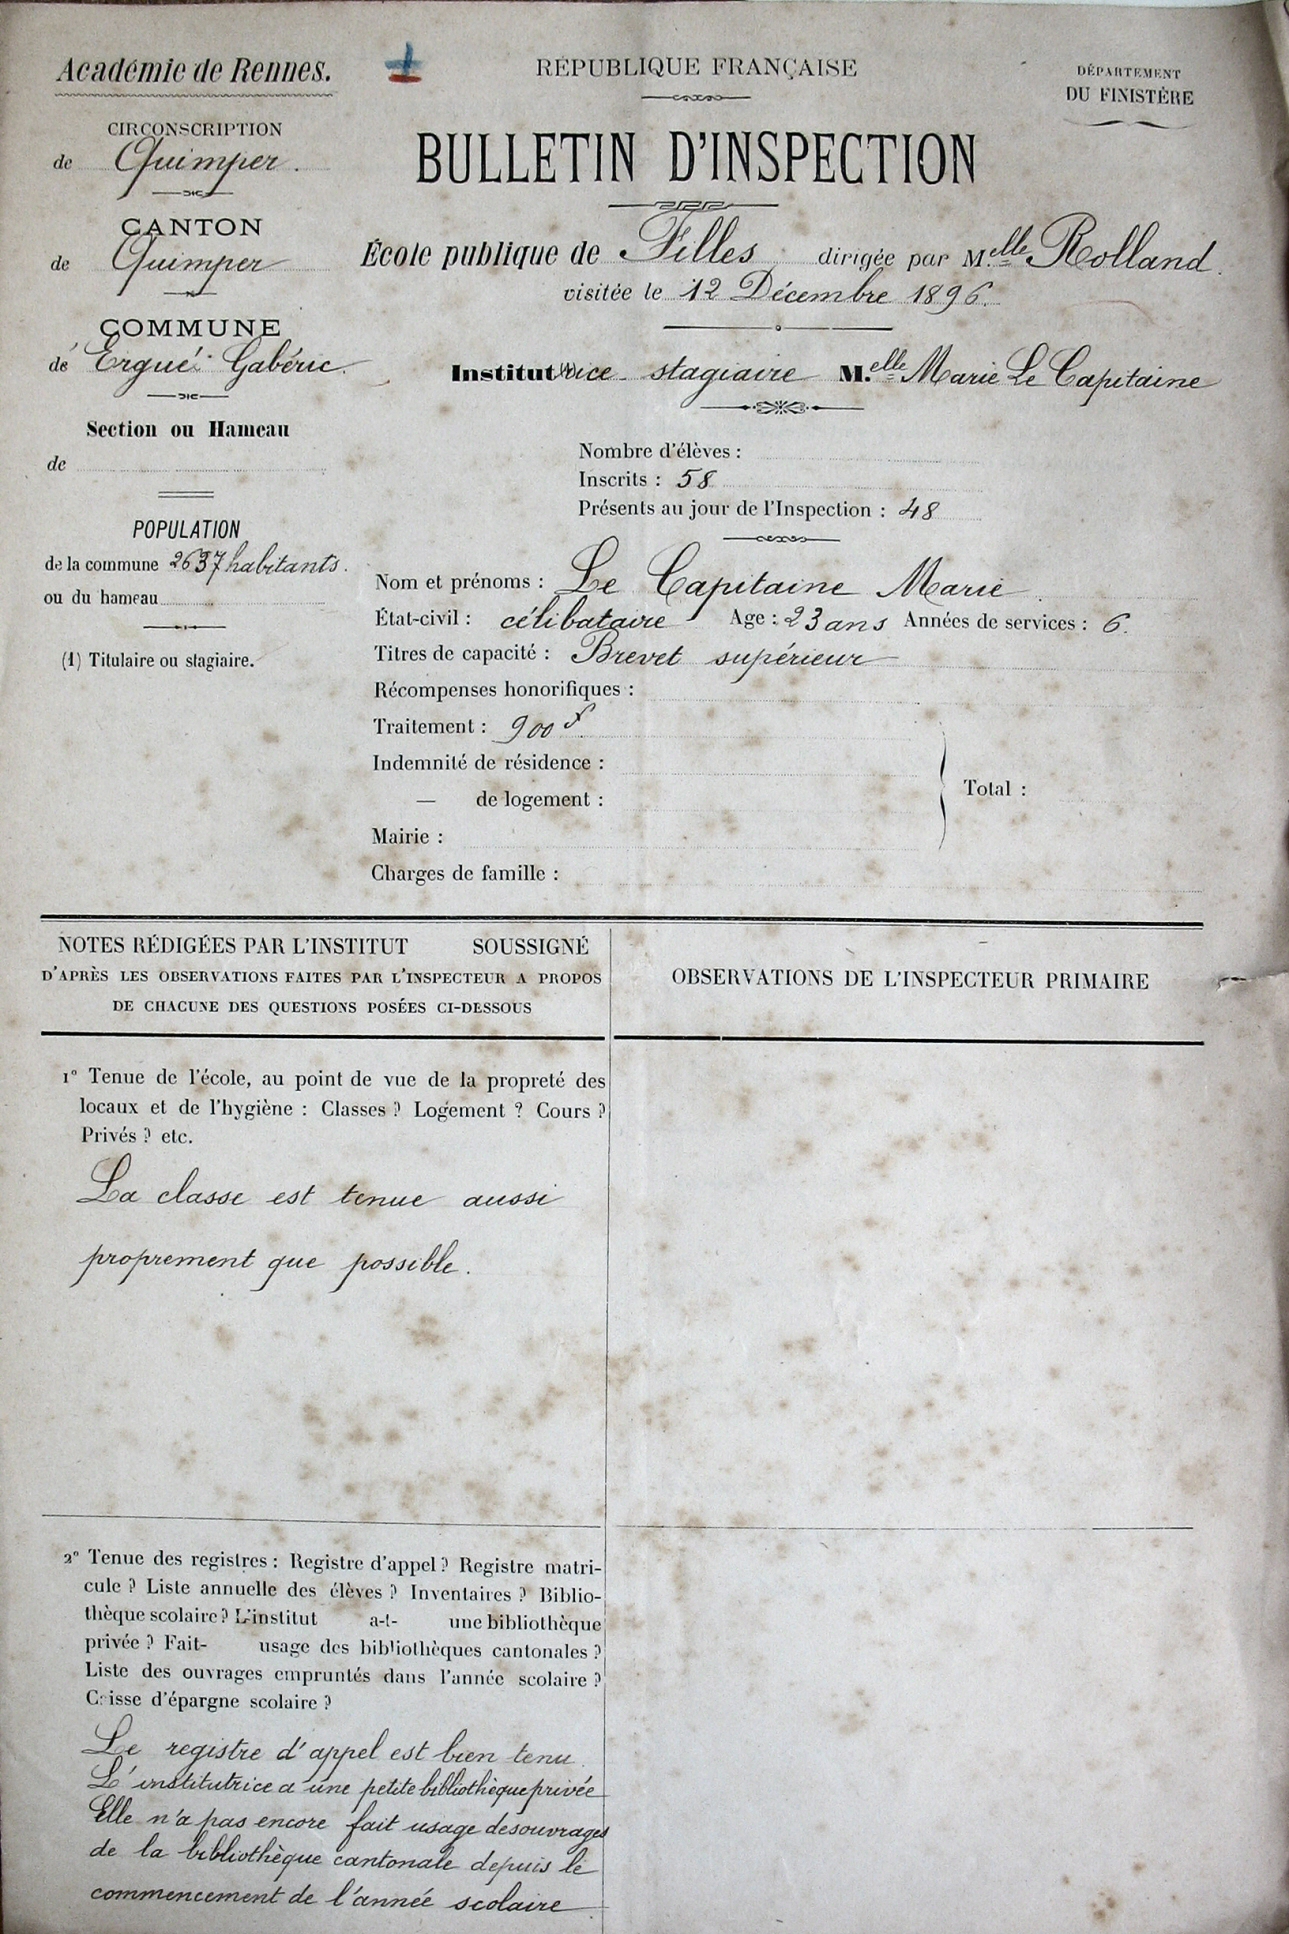 Académie de Rennes.
RÉPUBLIQUE FRANÇAISE
DÉPARTEMENT
DU FINISTÈRE
CIRCONSCRIPTION
de Quimper.
BULLETIN D'INSPECTION
CANTON
de Quimper
École publique de Filles dirigée par M.elle Rolland.
visitée le 12 Décembre 1896.
COMMUNE
de Ergué-Gabéric.
Institutrice stagiaire M.elle Marie Le Capitaine
Section ou Hameau
de
Nombre d'élèves :
Inscrits : 58
Présents au jour de l'Inspection : 48
POPULATION
de la commune 2637 habitants.
ou du hameau
(1) Titulaire ou stagiaire.
Nom et prénoms : Le Capitaine Marie
État-civil : célibataire Age : 23 ans Années de services : 6.
Titres de capacité : Brevet supérieur
Récompenses honorifiques :
Traitement : 900 f.
Indemnité de résidence :
— de logement :
Total :
Mairie :
Charges de famille :
NOTES RÉDIGÉES PAR L'INSTITUT SOUSSIGNÉ
D'APRÈS LES OBSERVATIONS FAITES PAR L'INSPECTEUR A PROPOS
DE CHACUNE DES QUESTIONS POSÉES CI-DESSOUS
OBSERVATIONS DE L'INSPECTEUR PRIMAIRE
1° Tenue de l'école, au point de vue de la propreté des
locaux et de l'hygiène : Classes ? Logement ? Cours ?
Privés ? etc.
La classe est tenue aussi
proprement que possible.
2° Tenue des registres : Registre d'appel ? Registre matri-
cule ? Liste annuelle des élèves ? Inventaires ? Biblio-
thèque scolaire ? L'institut a-t- une bibliothèque
privée ? Fait- usage des bibliothèques cantonales ?
Liste des ouvrages empruntés dans l'année scolaire ?
Caisse d'épargne scolaire ?
Le registre d'appel est bien tenu.
L'institutrice a une petite bibliothèque privée
Elle n'a pas encore fait usage des ouvrages
de la bibliothèque cantonale depuis le
commencement de l'année scolaire